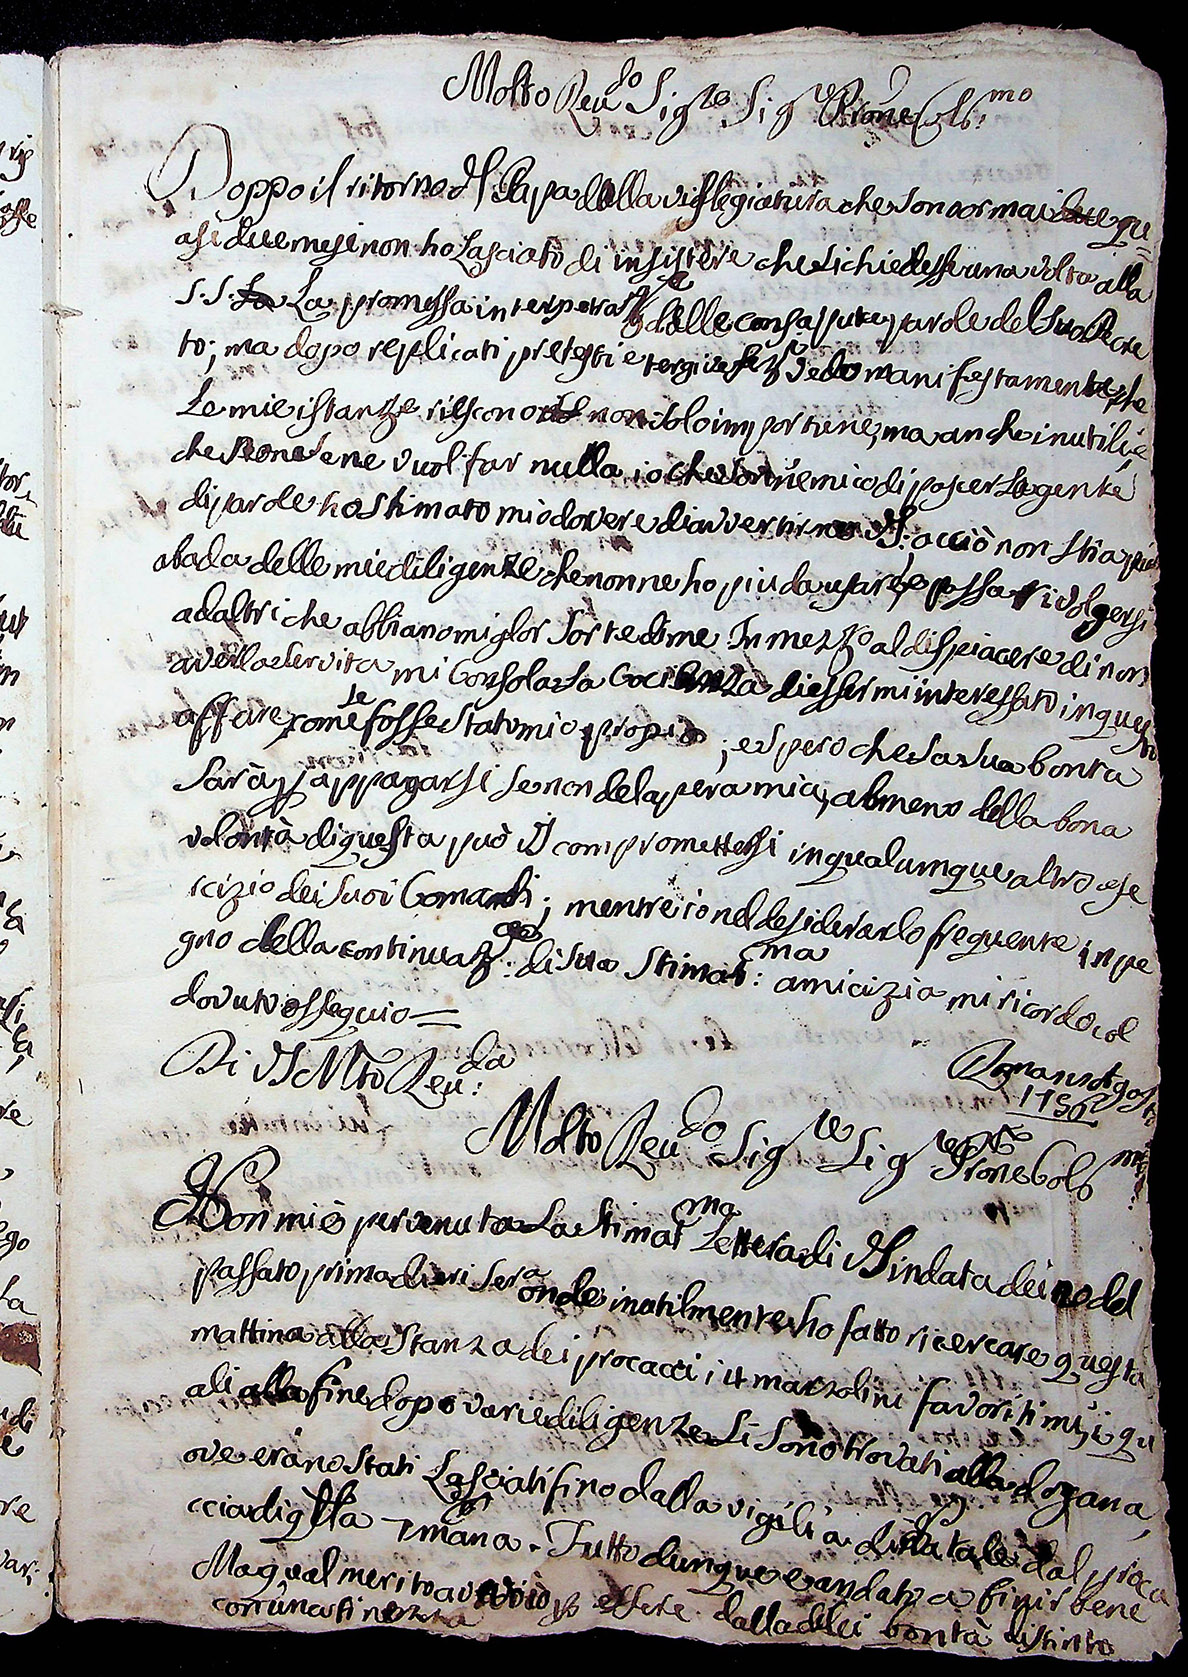 Molto Reu.do Sig.re Sig.re Prone Col.mo
Doppo il ritorno del Papa dalla villegiatura che son ormai due qu=
asi due mesi non ho Lasciato di insistere che si chiedesse una volta alla
S.S. La La promessa interpetraz.e delle consapute parole del suo Decre
to; ma dopo replicati pretesti e tergiversaz.i vedo manifestamente che
Le mie istanze riescono non solo importune, ma anche inutili, e
che non se ne vuol far nulla io che son nemico di pascer La gente
di parole ho stimato mio dovere di avvertirne VS: acciò non stia più
abada delle mie diligenze che non ne ho piu da usare, e possa rivolgersi
ad altri che abbiano miglor sorte di me. In mezzo al dispiacere di non
averla servita mi Consola La Coscienza di essermi interessato in questo
affare come se fosse stato mio propio; e spero che La sua bonta
sarà p appagarsi se non del opera mia, almeno della bona
volontà di questa può VS compromettersi in qualumque altro ese
rcizio dei suoi Comandi; mentre io nel desiderarlo frequente in pe
gno della continuaz.e di sua stimat.ma amicizia mi ricordo col
dovuto ossequio=
Di VS Mto Reu.da
Roma Agosto
Molto Reu.do Sig.re Sig.re Prone Col.mo
Non mi è pervenuta La Stimat.ma Lettera di VS in data dei del
passato prima di ieri sera onde inutilmente ho fatto ricercare questa
mattina alla Stanza dei procacci i marzolini favoritimi, i qu
ali alla fine dopo varie diligenze si sono trovati alla dogana,
ove erano stati Lasciati fino dalla vigilia di Natale dal proca
ccia di q.lla 7mana. Tutto dunque è andato a finir bene
Ma qual merito avevo io p essere dalla di lei bontà distinto
con una finezza